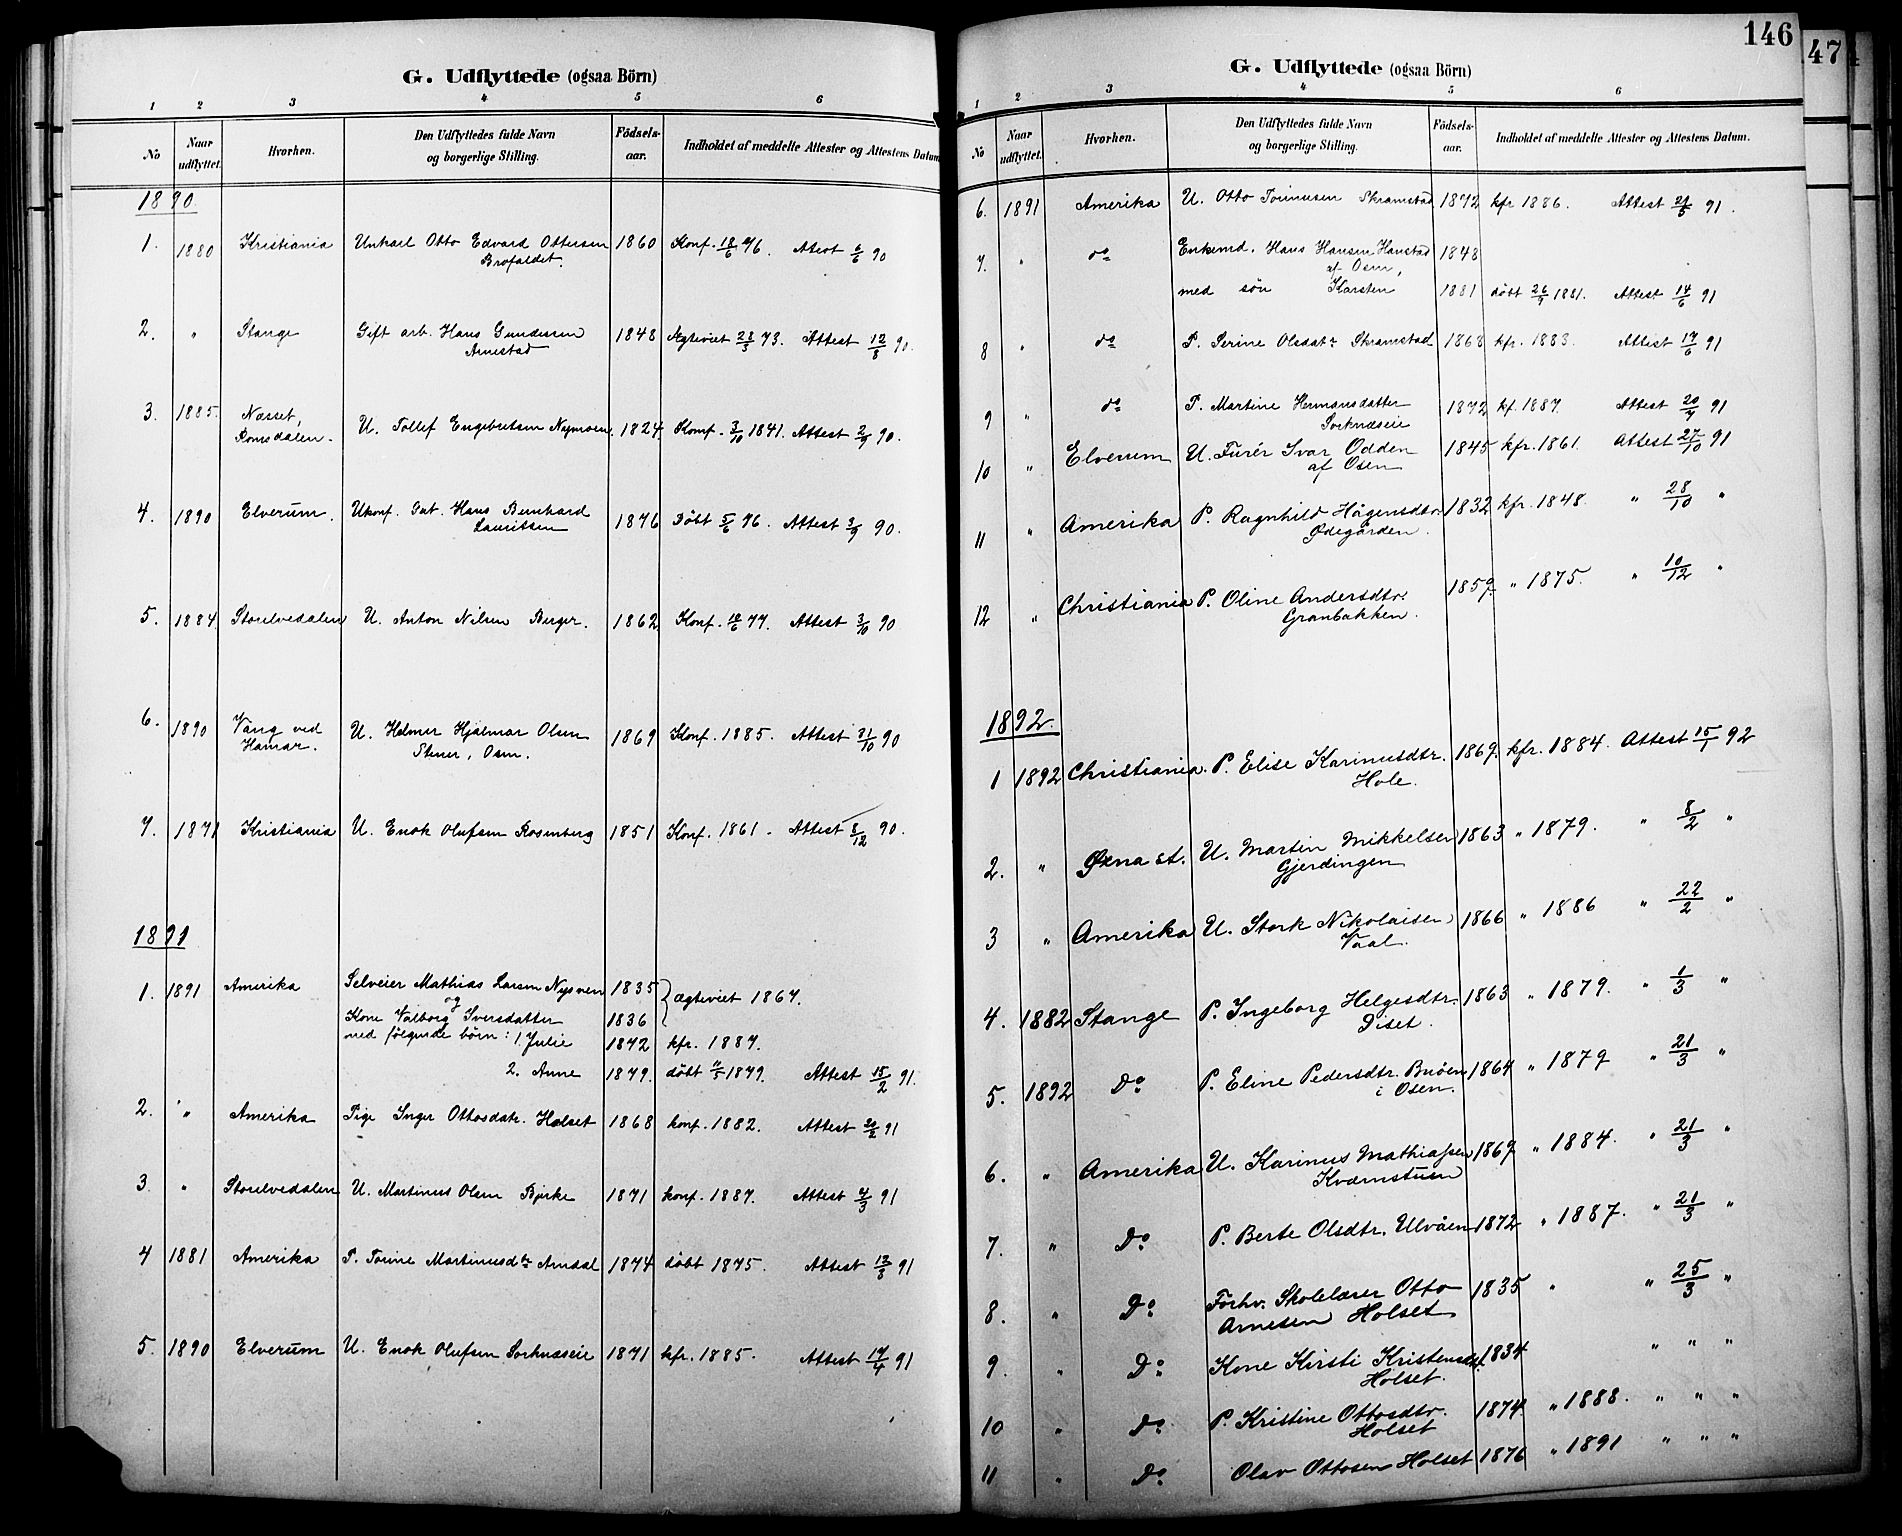 G. Udflyttede (ogsaa Börn)
1 2 3 4 5 6
No Naar udflyttet. Hvorhen. Den Udflyttedes fulde Navn og borgerlige Stilling. Födsels-aar. Indholdet af meddelte Attester og Attestens Datum
1890.
1. 1880 Kristiania Unkarl Otto Edvard Ottersen 1860 Konf. 18/6 76. Attest 6/6 90
Brofaldet.
2. " Stange Gift arb. Hans Gundersen 1848 Ægteviet 28/3 73. Attest 12/8 90.
Arnestad
3. 1885. Næsset, Romsdalen. U. Tollef Engebretsen Nymoen. 1824 Konf. 3/10 1841. Attest 2/9 90.
4. 1890 Elverum. Ukonf. Gut. Hans Bernhard 1876 Döbt 5/6 76. Attest 3/9 90.
Lauritsen
5. 1884 Storelvedalen U. Anton Nilsen Berger. 1862 Konf. 10/6 77. Attest 3/10 90
6. 1890 Vang ved Hamar. U. Helmer Hjalmar Olsen 1869 Konf. 1885. Attest 31/10 90
Stener, Osen.
7. 1871 Kristiania U. Enok Olufsen Rosenberg 1851 Konf. 1861. Attest 8/12 90.
1891
1. 1891 Amerika Selveier Mathias Larsen Nysven 1835 } ægteviet 1864.
og
Kone Valborg Iversdatter 1836
med følgende børn: 1. Julie 1872 kfr. 1887.
2. Anne 1879. döbt 11/5 1879. Attest 15/2 91.
2. " Amerika Pige Inger Ottosdatr. Holset 1868 konf. 1882. Attest 20/2 91
3. " Storelvedalen U. Martinus Olsen Bjørke 1871 konf. 1887. Attest 4/3 91
4 1881 Amerika P. Torine Martinusdtr Arndal 1874 döbt 1875. Attest 12/3 91
5. 1890 Elverum U. Enok Olufsen Sorknæseie 1871 kfr. 1885. Attest 17/4 91
146
47
G. Udflyttede (ogsaa Börn)
1 2 3 4 5 6
No Naar udflyttet. Hvorhen. Den Udflyttedes fulde Navn og borgerlige Stilling. Födsels-aar. Indholdet af meddelte Attester og Attestens Datum.
6. 1891 Amerika U. Otto Torinusen Skramstad 1872 kfr 1886. Attest 21/5 91.
7. " do Enkemd. Hans Hansen Hanstad 1848
af Osen,
med sön Karsten 1881 döbt 26/9 1881. Attest 14/6 91
8 " do P. Serine Olsdatr Skramstad 1868 kfr. 1883. Attest 17/6 91
9 " do P. Martine Hermansdatter 1872 kf. 1887. Attest 20/7 91
Sorknæseie
10 " Elverum U. Furér Ivar Odden 1845 kfr. 1861. Attest 27/10 91
af Osen
11 " Amerika P. Ragnhild Hågensdtr. 1832 kfr. 1848. " 28/10 "
Ødegården.
12 " Christiania P. Oline Andersdtr. 1859 " 1875. " 10/12 "
Granbakken.
1892.
1 1892 Christiania. P. Elise Karinusdtr. 1869. kfr. 1884. Attest 15/1 92
Hole.
2. " Øxna st. U. Martin Mikkelsen 1863 " 1879. " 8/2 "
Gjerdingen
3 " Amerika U. Stork Nikolaisen 1866 " 1886 " 22/2 "
Vaal.
4. 1882 Stange P. Ingeborg Helgesdtr. 1863 " 1879. " 1/3 "
Diset.
5. 1892 Do P. Eline Pedersdtr. Bruöen 1864 " 1879 " 21/3 "
i Osen.
6. " Amerika U. Karinus Mathiassen 1869 " 1884. " 21/3 "
Kværnstuen
7. " Do P. Berte Olsdtr. Ulvåen 1872 " 1887. " 21/3 "
8. " Do Forhv. Skolelærer Otto 1835 " " 25/3 "
Arnesen Holset
9. " Do Kone Kirsti Kristensdtr. 1834 " " "
Holset.
10 " Do P. Kristine Ottosdtr. 1874 " 1888. " " "
Holset
11 " Do Olav Ottosen Holset 1876 " 1891 " " "